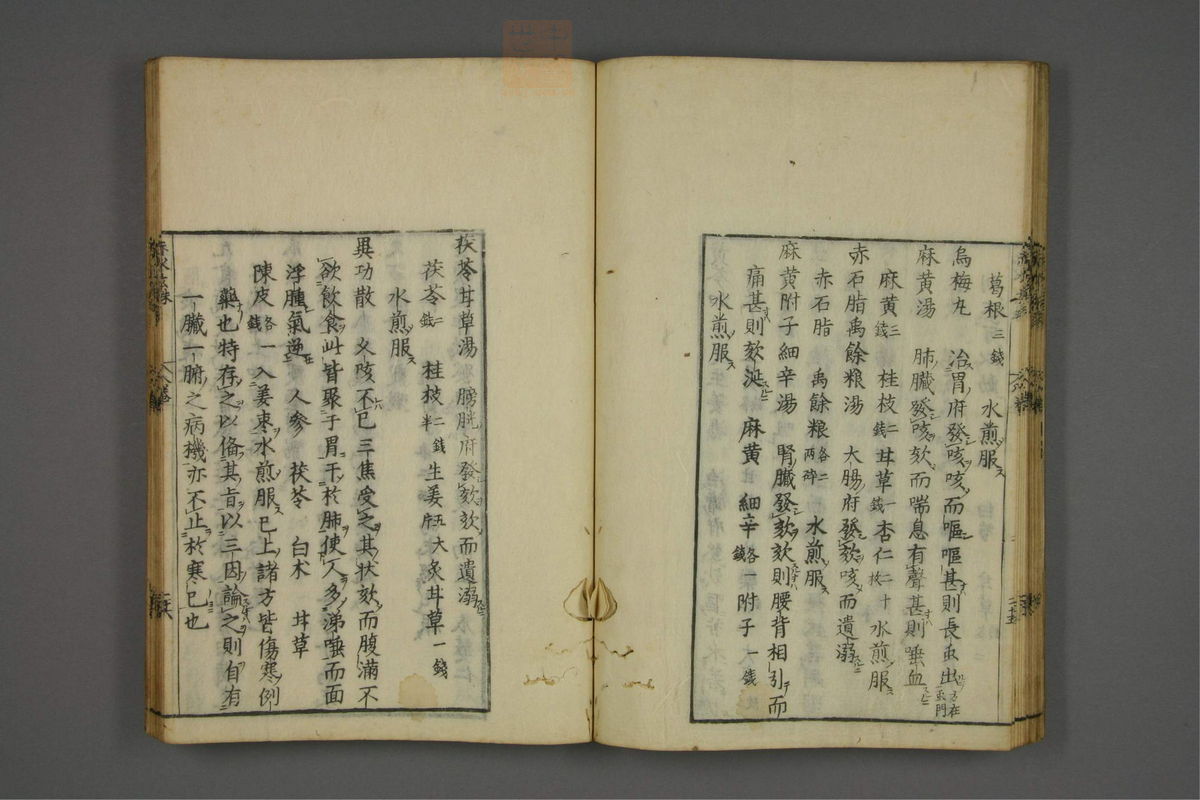 葛根三錢 水煎服
烏梅丸 治胃府發咳咳而嘔嘔甚則長虫出方在虫門
麻黄湯 肺臟發咳欬而喘息有聲甚則唾血
麻黄三錢 桂枝二錢 甘草一錢 杏仁二十枚 水煎服
赤石脂禹餘粮湯 大腸府發欬咳而遺溺
赤石脂 禹餘粮各二兩碎 水煎服
麻黄附子細辛湯 腎臟發欬欬則腰背相引而
痛甚則欬涎 麻黄 細辛各一錢 附子一錢
水煎服
茯苓甘草湯 膀胱府發欬欬而遺溺
茯苓二錢 桂枝二錢半 生姜五片大 炙甘草一錢
水煎服
異功散 久咳不已三焦受之其状欬而腹滿不
欲飲食此皆聚于胃干於肺使人多涕唾而面
浮腫氣逆 人參 茯苓 白朮 甘草
陳皮各一錢 入姜枣水煎服已上諸方皆傷寒例
藥也特存之以俻其旨以三因論之則自有
一臟一腑之病機亦不止於寒已也